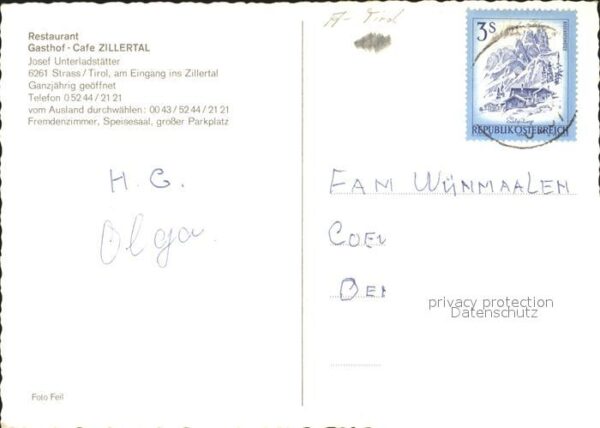 Restaurant
Gasthof - Cafe ZILLERTAL
Josef Unterladstätter
6261 Strass/Tirol, am Eingang ins Zillertal
Ganzjährig geöffnet
Telefon 0 52 44 / 21 21
vom Ausland durchwählen: 00 43 / 52 44 / 21 21
Fremdenzimmer, Speisesaal, großer Parkplatz
H. G.
Olga
Foto Feil
A- Tirol
3S
REPUBLIK ÖSTERREICH
FAM WÜNMAALEN
COE
BE
privacy protection
Datenschutz